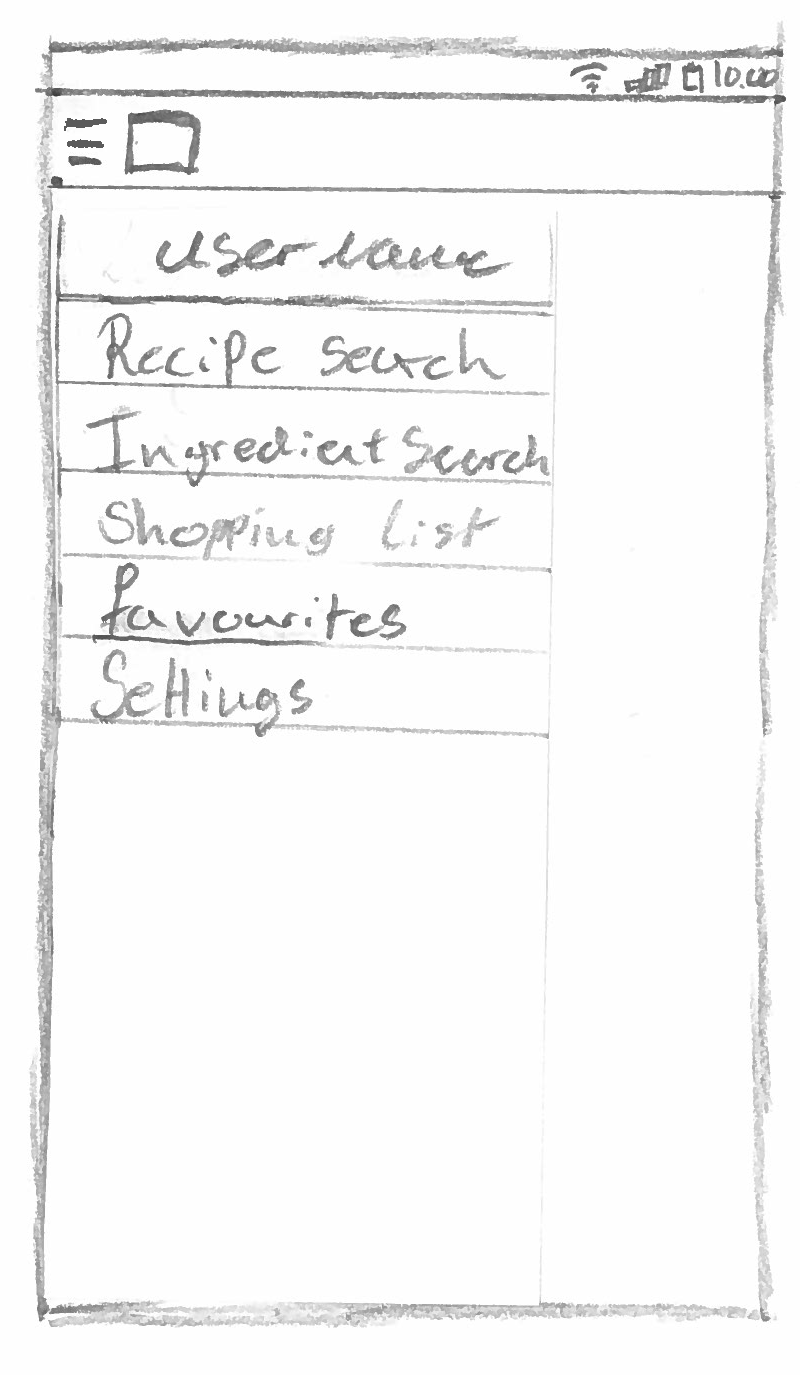 10.00
User name
Recipe Search
Ingredient Search
Shopping List
favourites
Settings